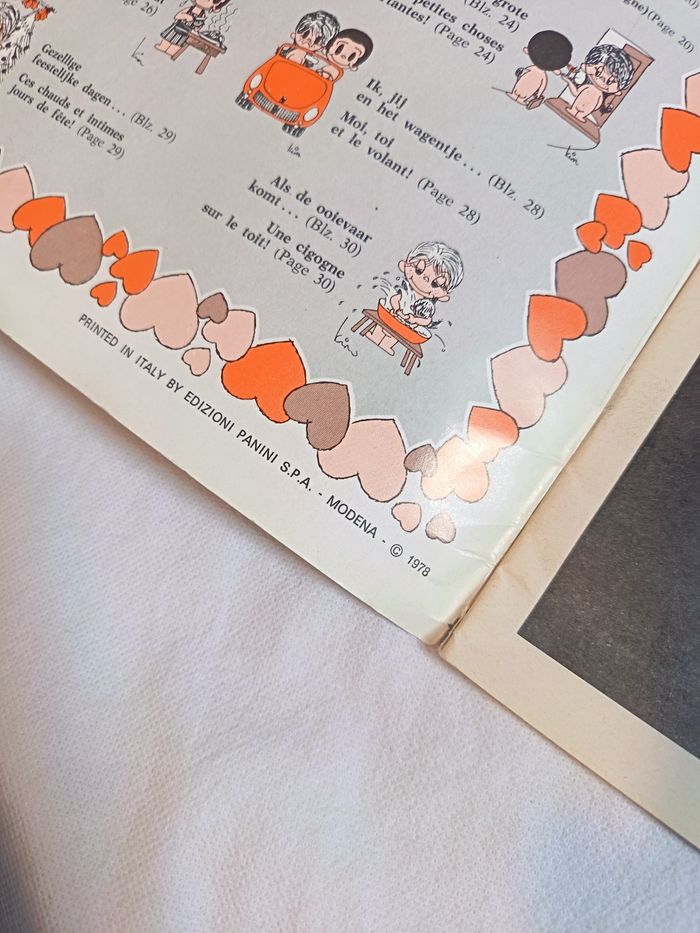 grote
(Blz. 24)
petites choses
(Page 24)
(Page 20)
Gezellige
feestelijke dagen... (Blz. 29)
Ces chauds et intimes
jours de fête! (Page 29)
Ik, jij
en het wagentje... (Blz. 28)
Moi, toi
et le volant! (Page 28)
Als de ooievaar
komt... (Blz. 30)
Une cigogne
sur le toit! (Page 30)
kim
kim
kim
kim
PRINTED IN ITALY BY EDIZIONI PANINI S.P.A. - MODENA - © 1978